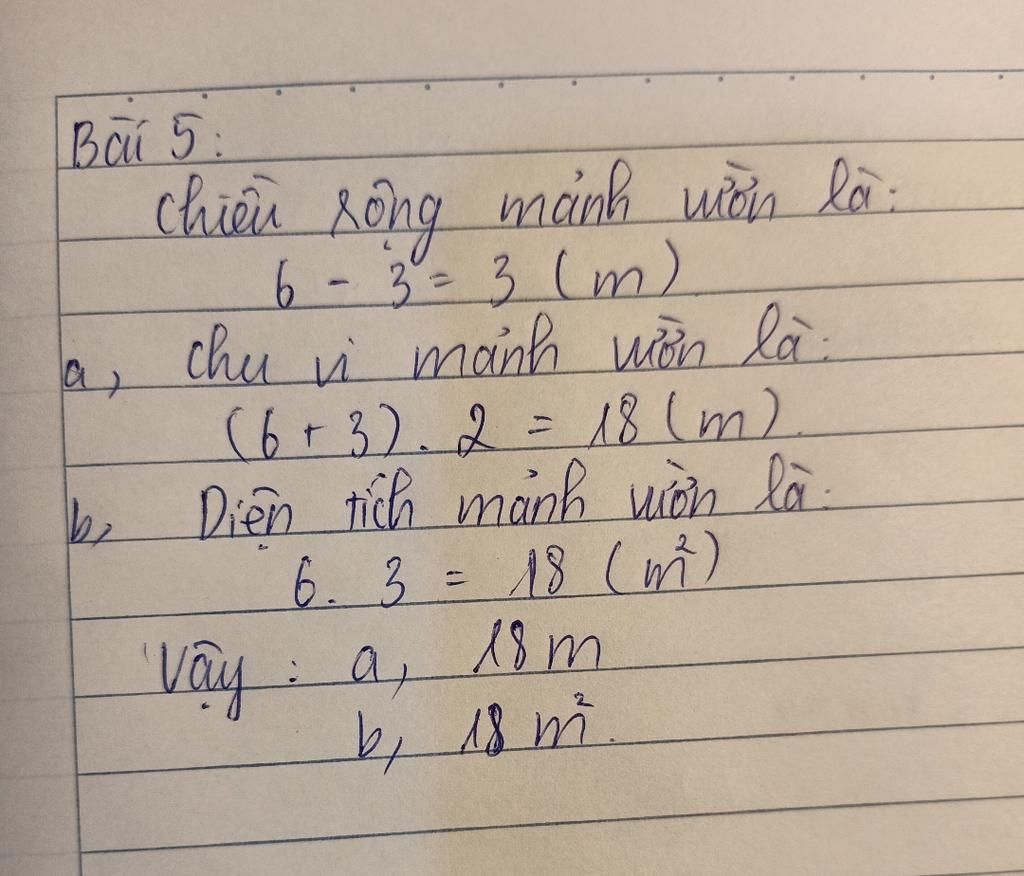 Bài 5:
Chiều rộng mảnh vườn là:
6 - 3 = 3 (m)
a, Chu vi mảnh vườn là:
(6 + 3) . 2 = 18 (m)
b, Diện tích mảnh vườn là:
6 . 3 = 18 (m²)
Vậy : a, 18 m
b, 18 m².